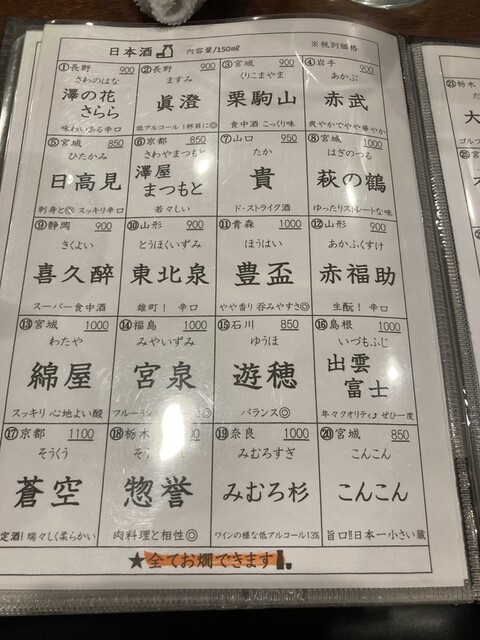 日本酒 内容量/150㎖ ※税別価格
①長野 900
さわのはな
澤の花
さらら
味わいある辛口
②長野 900
ますみ
眞澄
低アルコール!杯目に◎
③宮城 900
くりこまやま
栗駒山
食中酒 こっくり味
④岩手 900
あかぶ
赤武
爽やかでやや華やか
⑤宮城 850
ひたかみ
日高見
刺身と◎ スッキリ辛口
⑥京都 850
さわやまつもと
澤屋
まつもと
若々しい
⑦山口 950
たか
貴
ド・ストライク酒
⑧宮城 1000
はぎのつる
萩の鶴
ゆったりストレートな味
⑨静岡 900
きくよい
喜久醉
スーパー食中酒
⑩山形 900
とうほくいずみ
東北泉
雄町! 辛口
⑪青森 1000
ほうはい
豊盃
やや香り 呑みやすさ◎
⑫山形 900
あかふくすけ
赤福助
生酛! 辛口
⑬宮城 1000
わたや
綿屋
スッキリ 心地よい酸
⑭福島 1000
みやいずみ
宮泉
⑮石川 850
ゆうほ
遊穂
バランス◎
⑯島根 1000
いづもふじ
出雲
富士
年々クオリティ♪ ぜひ一度
⑰京都 1100
そうくう
蒼空
定酒!瑞々しく柔らかい
⑱栃木
惣誉
肉料理と相性◎
⑲奈良 1000
みむろすぎ
みむろ杉
ワインの様な低アルコール13%
⑳宮城 850
こんこん
こんこん
旨口!!日本一小さい蔵
★全てお燗できます
㉑栃木
大
ゴルフ